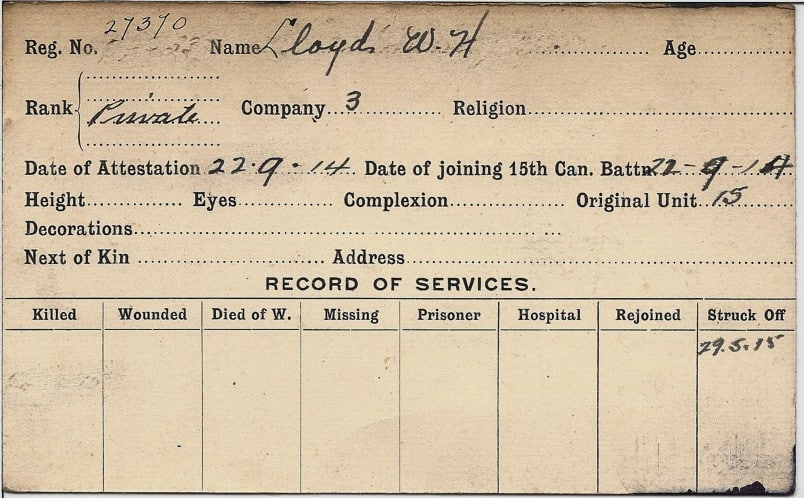 Reg. No. 27370 Name Lloyd W. H Age
Rank Private Company 3 Religion
Date of Attestation 22.9.14 Date of joining 15th Can. Battn. 22-9-14
Height Eyes Complexion Original Unit 15
Decorations
Next of Kin Address
RECORD OF SERVICES.
Killed Wounded Died of W. Missing Prisoner Hospital Rejoined Struck Off
29.5.15